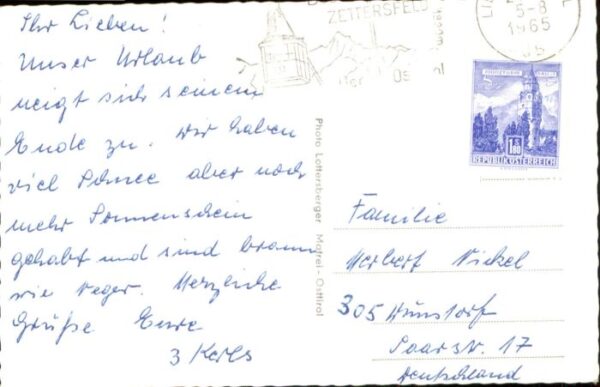 Ihr Lieben!
Unser Urlaub
neigt sich seinem
Ende zu. Wir haben
viel Schnee aber noch
mehr Sonnenschein
gehabt und sind braun
wie Neger. Herzliche
Grüße Eure
3 Kerls
ZETTERSFELD
Ost
5-8
1965
S 1.80
REPUBLIK ÖSTERREICH
Photo Lottersberger Matrei-Osttirol
Familie
Herbert Nickel
305 Wunstorf
Saarstr. 17
Deutschland